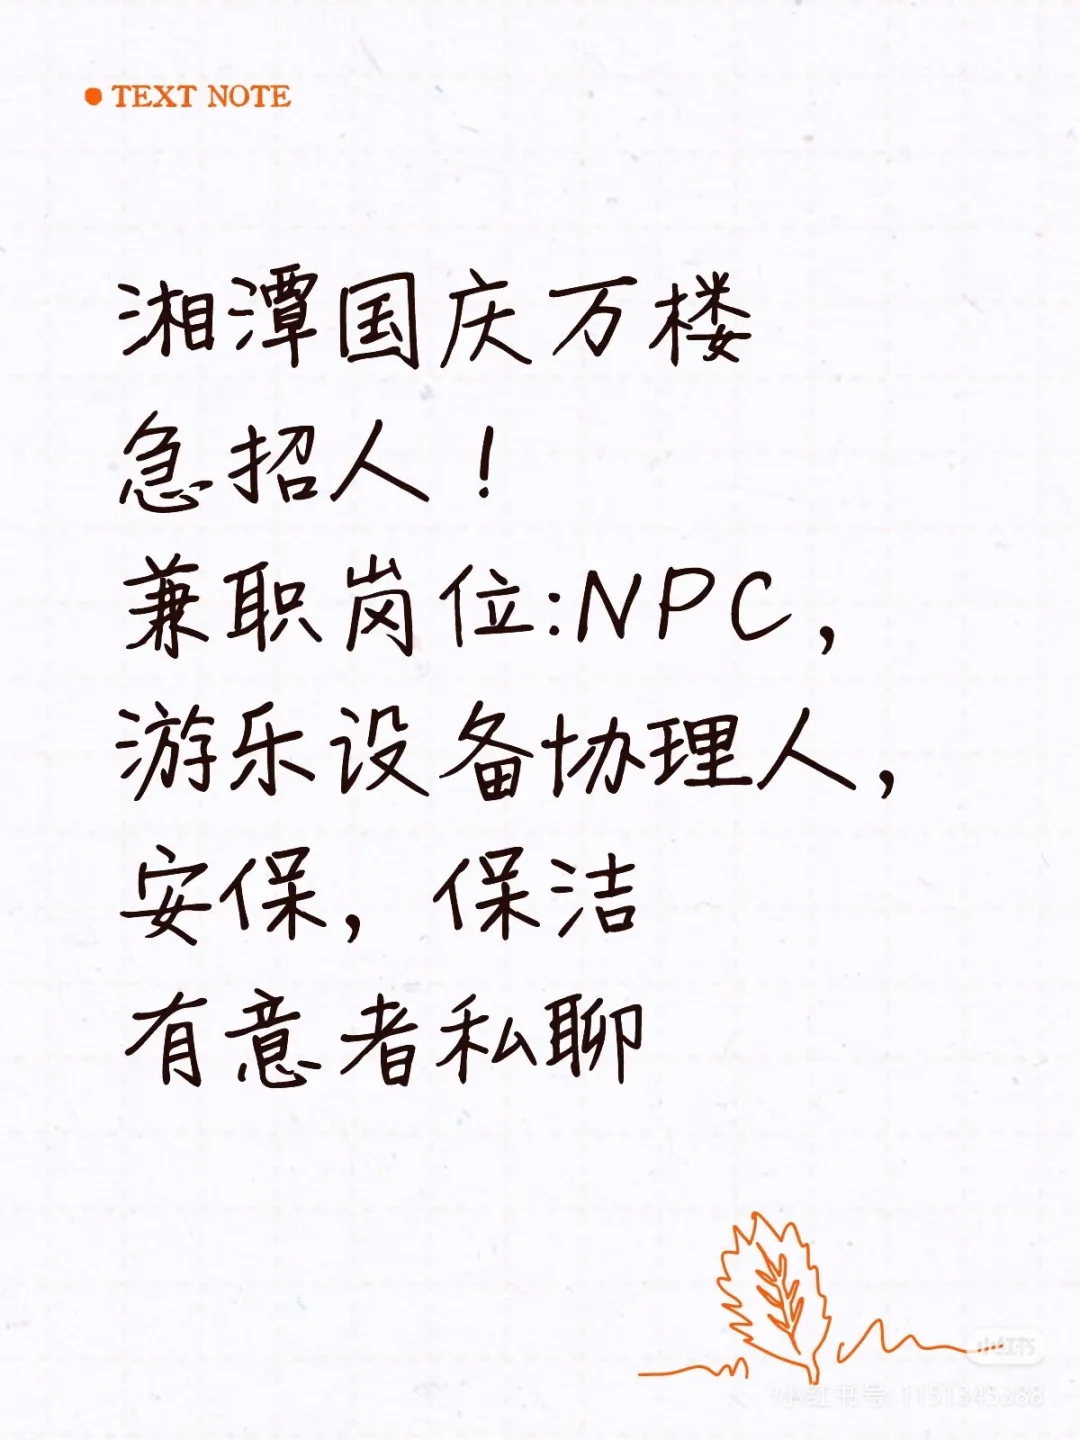 TEXT NOTE
湘潭国庆万楼
急招人！
兼职岗位:NPC，
游乐设备协理人，
安保，保洁
有意者私聊
小红书
小红书号: 1151345388